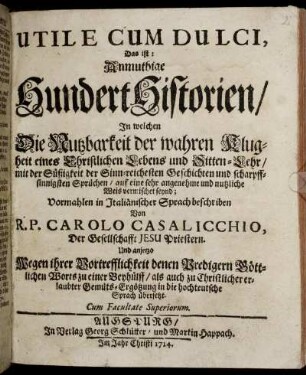 UTILE CUM DULCI,
Das ist:
Anmuthige
Hundert Historien/
In welchen
Die Nutzbarkeit der wahren Klug-
heit eines Christlichen Lebens und Sitten-Lehr/
mit der Süssigkeit der Sinn-reichesten Geschichten und scharpff-
sinnigsten Sprüchen/ auf eine sehr angenehme und nutzliche
Weis vermischet seynd;
Vormahlen in Italiänischer Sprach beschriben
Von
R.P. CAROLO CASALICCHIO,
Der Gesellschafft JESU Priestern.
Und anjetzo
Wegen ihrer Vortrefflichkeit denen Predigern Gött-
lichen Worts zu einer Beyhülff/ als auch zu Christlicher er-
laubter Gemüts-Ergötzung in die hochteutsche
Sprach übersetzt.
Cum Facultate Superiorum.
AUGSPURG/
In Verlag Georg Schlüter/ und Martin Happach.
Im Jahr Christi 1724.